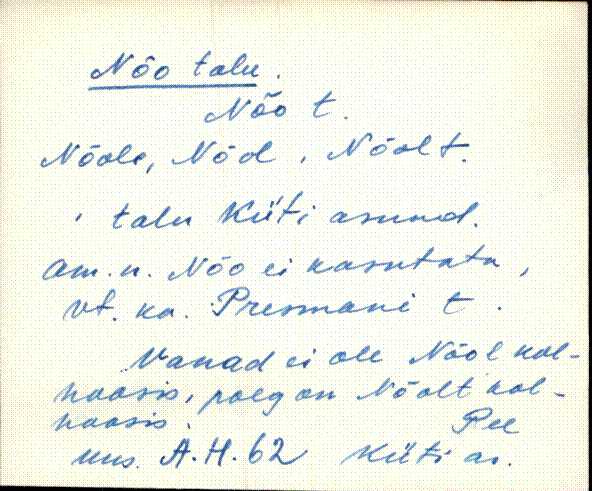 Nõo talu.
Nõo t.
Nõole, Nõol, Nõolt.
, talu Küti asund.
Am. n. Nõo ei kasutata,
vt. ka. Presmani t.
Vanad ei ole Nõol kol-
hoosis, poeg on Nõolt kol-
hoosis.
Pee
A.H. 62 Küti as.